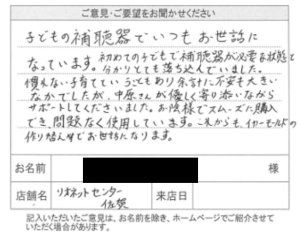 ご意見・ご要望をお聞かせください
子どもの補聴器でいつもお世話に
なっています。初めての子どもで補聴器が必要な状態と
分かりとても落ち込んでいました。
慣れない子育てということもあり余計に不安も大きい
なかでしたが、中原さんが優しく寄り添いながら
サポートしてくださいました。お陰様でスムーズに購入
でき、問題なく使用しています。これからも、イヤーモールドの
作り替え等でお世話になります。
お名前
様
店舗名
リオネットセンター
佐賀
来店日
記入いただいたご意見は、お名前を除き、ホームページでご紹介させて
いただく場合があります。